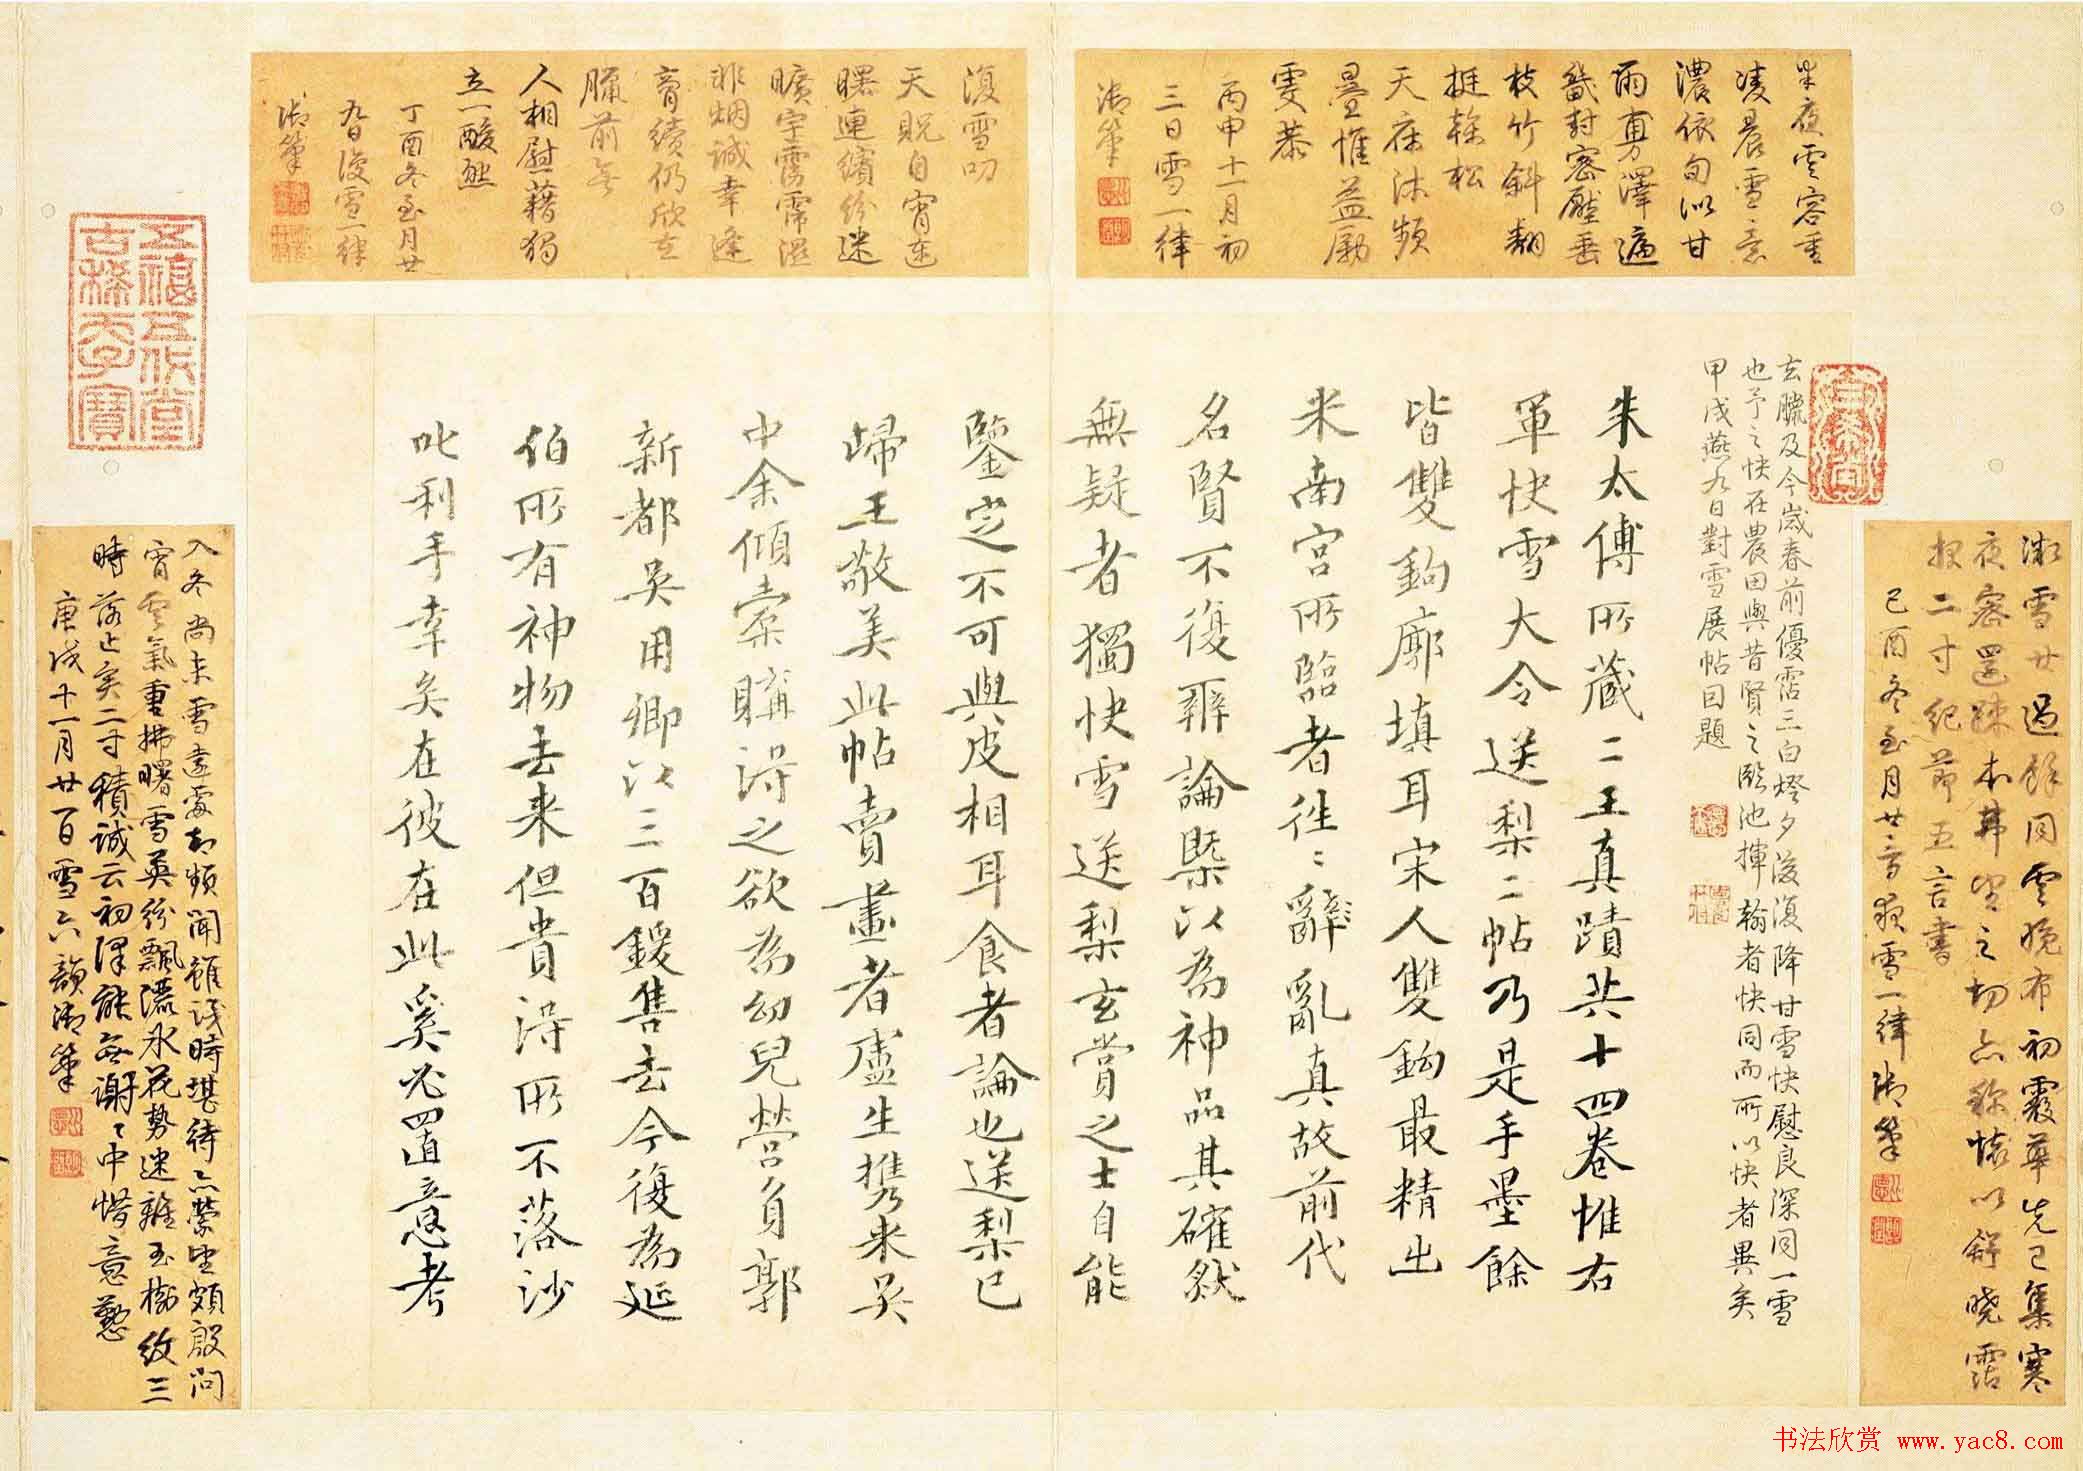 半夜雲容重
凌晨雪意
濃依旬似甘
雨勇澤遍
畿封密壓垂
枝竹斜翻
挺榦松
天庥沐頻
疊惟益勵
雯恭
丙申十一月初
三日雪一律
御筆
復雪叨
天貺自宵達
曙連繽紛迷
曠宇霶霈滋
非烟誠幸逢
膏續仍欣在
臘前無
人相慰藉獨
立一酸然
丁酉冬至月廿
九日復雪一律
御筆
微雪廿過餘同雲晚布初霰華先已集寒
夜密還疎本弗望之切亦餘懷以舒曉霑
報二寸紀節五言書
己酉冬至月廿二日夜雪一律御筆
去臘及今歲春前優霑三白燈夕後復降甘雪快慰良深同一雪
也予之快在農田與昔賢之臨池揮翰者快同而所以快者異矣
甲戌燕九日對雪展帖因題
朱太傅所蔵二王真蹟共十四卷惟右
軍快雪大令送梨二帖乃是手墨餘
皆雙鉤廓填耳宋人雙鉤最精出
米南宮所臨者往往亂真故前代
名賢不復辨論槩以為神品其確然
無疑者獨快雪送梨玄賞之士自能
鑒定不可與皮相耳食者論也送梨已
歸王敬美此帖賣畫者盧生携来吴
中余傾橐購得之欲為幼兒營負郭
新都吴用卿以三百鍰售去今復為延
伯所有神物去来但貴得所不落沙
叱利手幸矣在彼在此奚必置意考
五福五代堂
古稀天子寶
入冬尚未雪遠處却頻聞雖淺時堪待亦縈望頗殷問
宵雲氣重拂曙雪英紛飄灑氷花勢迷離玉樹紋三
時落止矣二寸積誠云初澤能無謝謝中惜意懃
庚戌十一月廿一日雪六韻御筆
书法欣赏 www.yac8.com